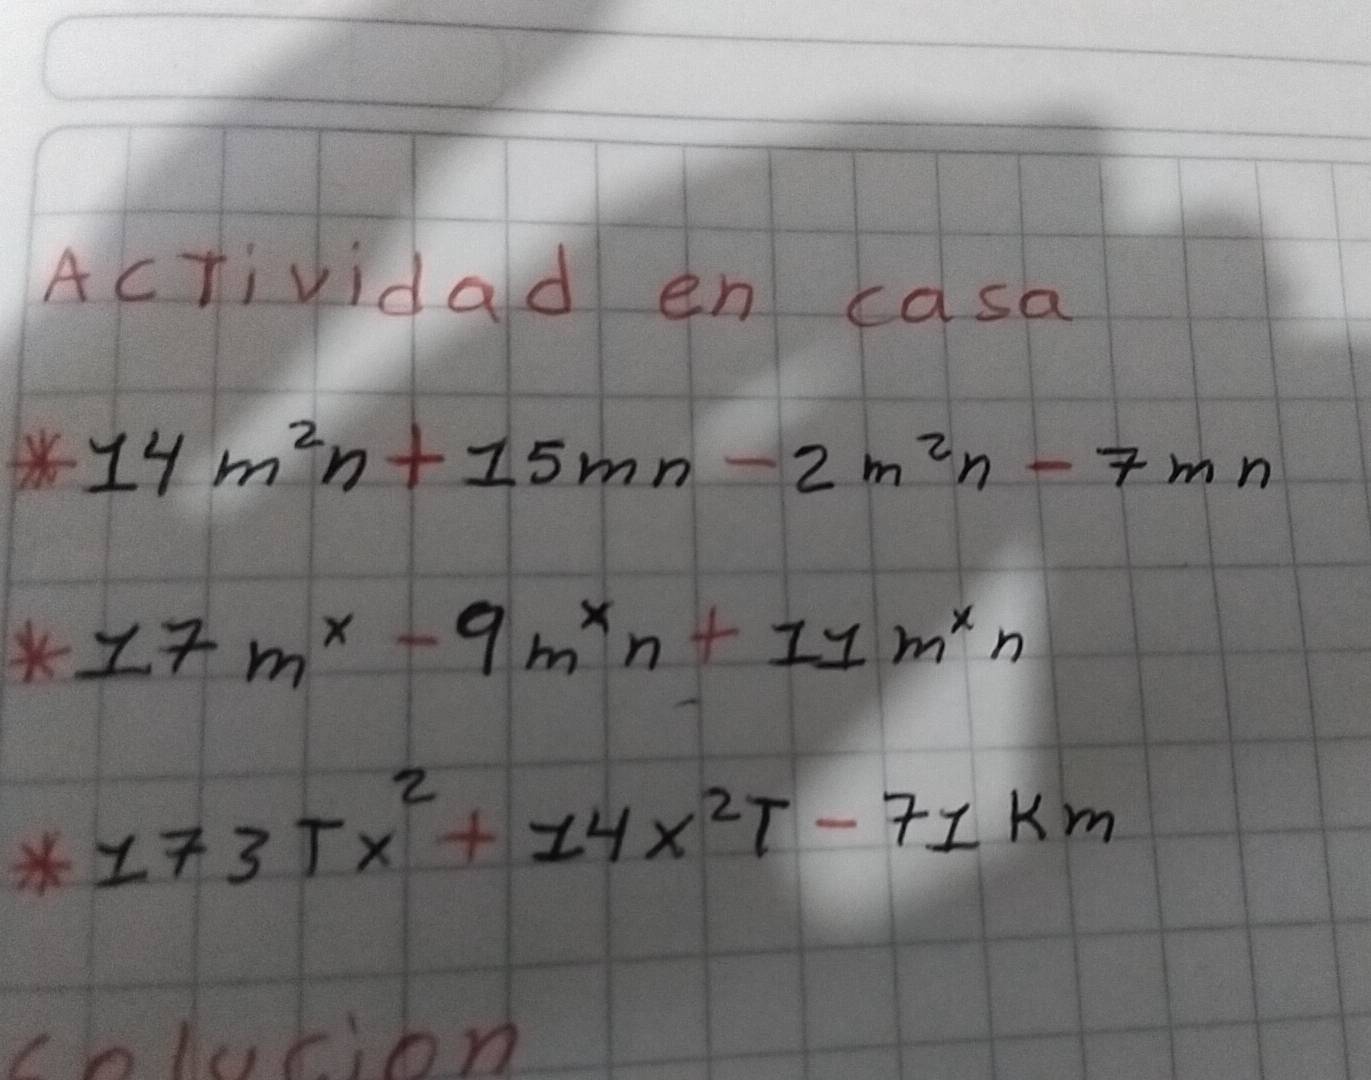 Actividad en casa
* 14 m²n + 15mn - 2m²n - 7mn
* 17 mˣ - 9mˣn + 11mˣn
* 173Tx² + 14x²T - 71Km
Solucion